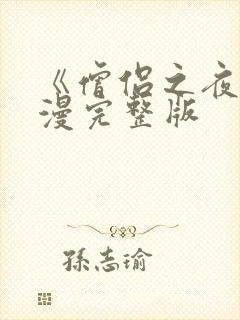 《僧侣之夜
漫完整版
孫志瑜